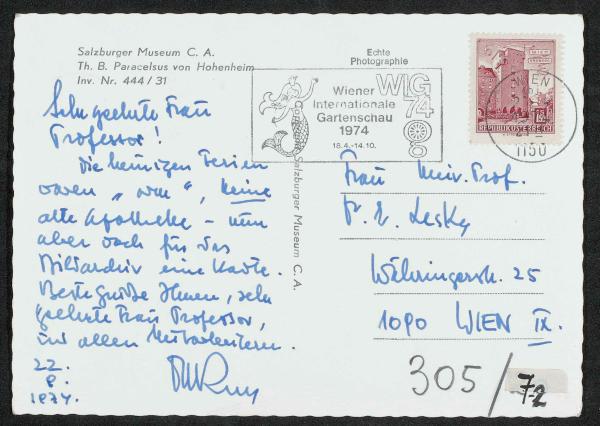 Salzburger Museum C. A.
Th. B. Paracelsus von Hohenheim
Inv. Nr. 444/31
Echte
Photographie
Wiener
Internationale
Gartenschau
1974
18.4.-14.10.
WIG
74
REPUBLIK ÖSTERREICH
WIEN
1150
Salzburger Museum C. A.
Sehr geehrte Frau
Professor!
Die heurigen Ferien
waren „ “, keine
alte Apotheke – nun
aber doch für das
Bildarchiv eine Karte.
Beste Grüße Ihnen, sehr
geehrte Frau Professor,
und allen Mitarbeitern.
22.
8.
1974.
Frau Univ. Prof.
Dr. E. Lesky
Währingerstr. 25
1090 WIEN IX.
305/72